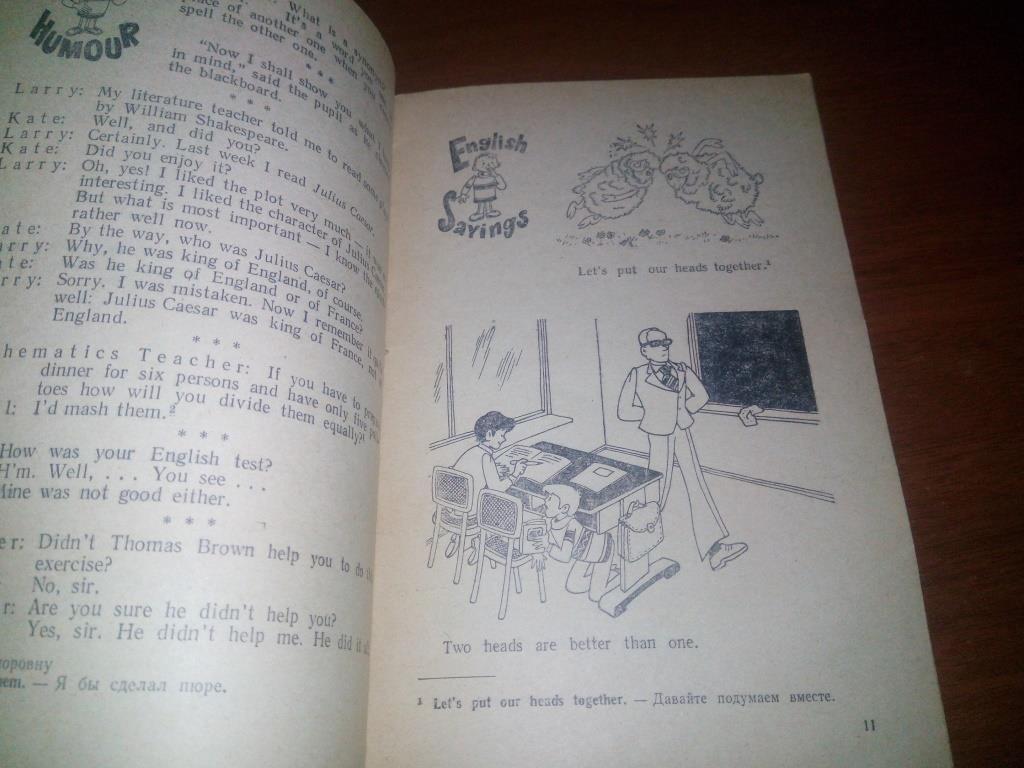 HUMOUR
What is a synonym
It's a word you
place of another one when you
spell the other one.
* * *
"Now I shall show you what I
in mind," said the pupil, as he
the blackboard.
* * *
Larry: My literature teacher told me to read some
by William Shakespeare.
Kate: Well, and did you?
Larry: Certainly. Last week I read Julius Caesar.
Kate: Did you enjoy it?
Larry: Oh, yes! I liked the plot very much — it
interesting. I liked the character of Julius
But what is most important — I know the
rather well now.
ate: By the way, who was Julius Caesar?
arry: Why, he was king of England, of course.
ate: Was he king of England or of France?
rry: Sorry. I was mistaken. Now I remember it
well: Julius Caesar was king of France, not
England.
* * *
hematics Teacher: If you have to
dinner for six persons and have only five
toes how will you divide them equally?¹
l: I'd mash them.²
* * *
How was your English test?
H'm. Well, . . . You see . . .
Mine was not good either.
* * *
er: Didn't Thomas Brown help you to do
exercise?
No, sir.
r: Are you sure he didn't help you?
Yes, sir. He didn't help me. He did it
оровну
— Я бы сделал пюре.
English
Sayings
Let's put our heads together.¹
Two heads are better than one.
¹ Let's put our heads together. — Давайте подумаем вместе.
11